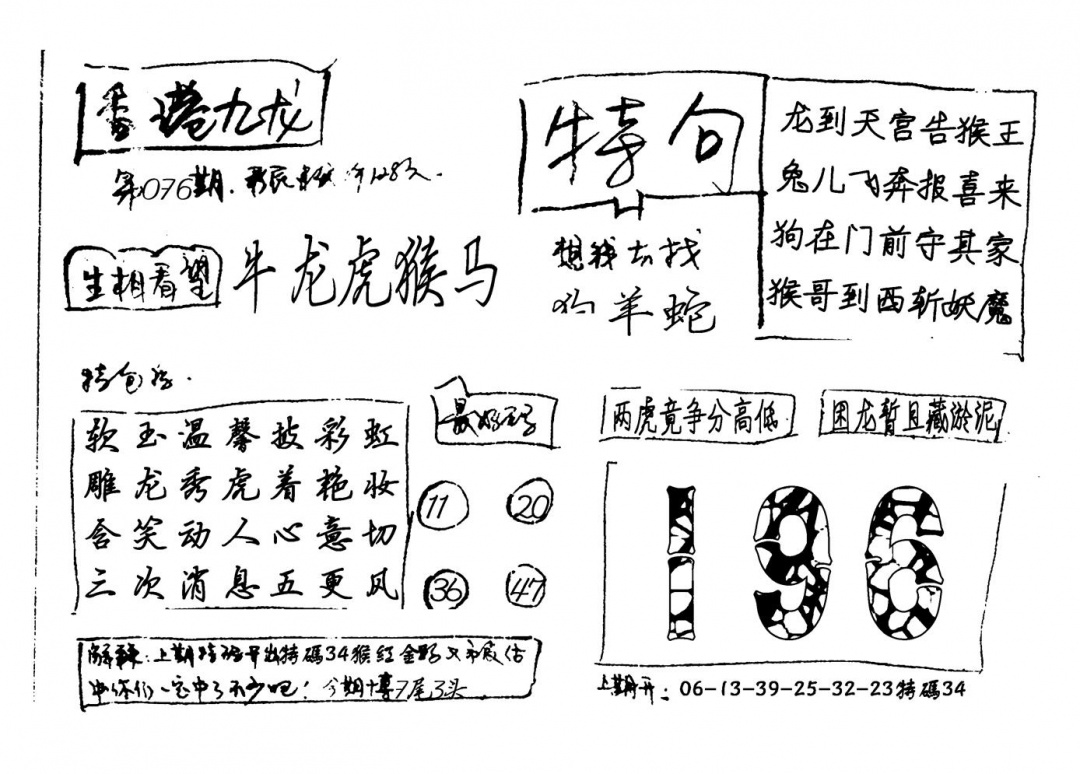 香港九龙
第076期.
生相看望
牛龙虎猴马
特句
想我去找
狗羊蛇
龙到天宫告猴王
兔儿飞奔报喜来
狗在门前守其家
猴哥到西斩妖魔
特包
软玉温馨披彩虹
雕龙秀虎着艳妆
含笑动人心意切
三次消息五更风
最好玉子
11 20
36 47
两虎竟争分高低
困龙暂且藏淤泥
196
解释:上期特码开出特碼34猴红金野又市
中你们一定中了不少吧!今期博7尾3头
上期开:06-13-39-25-32-23特碼34